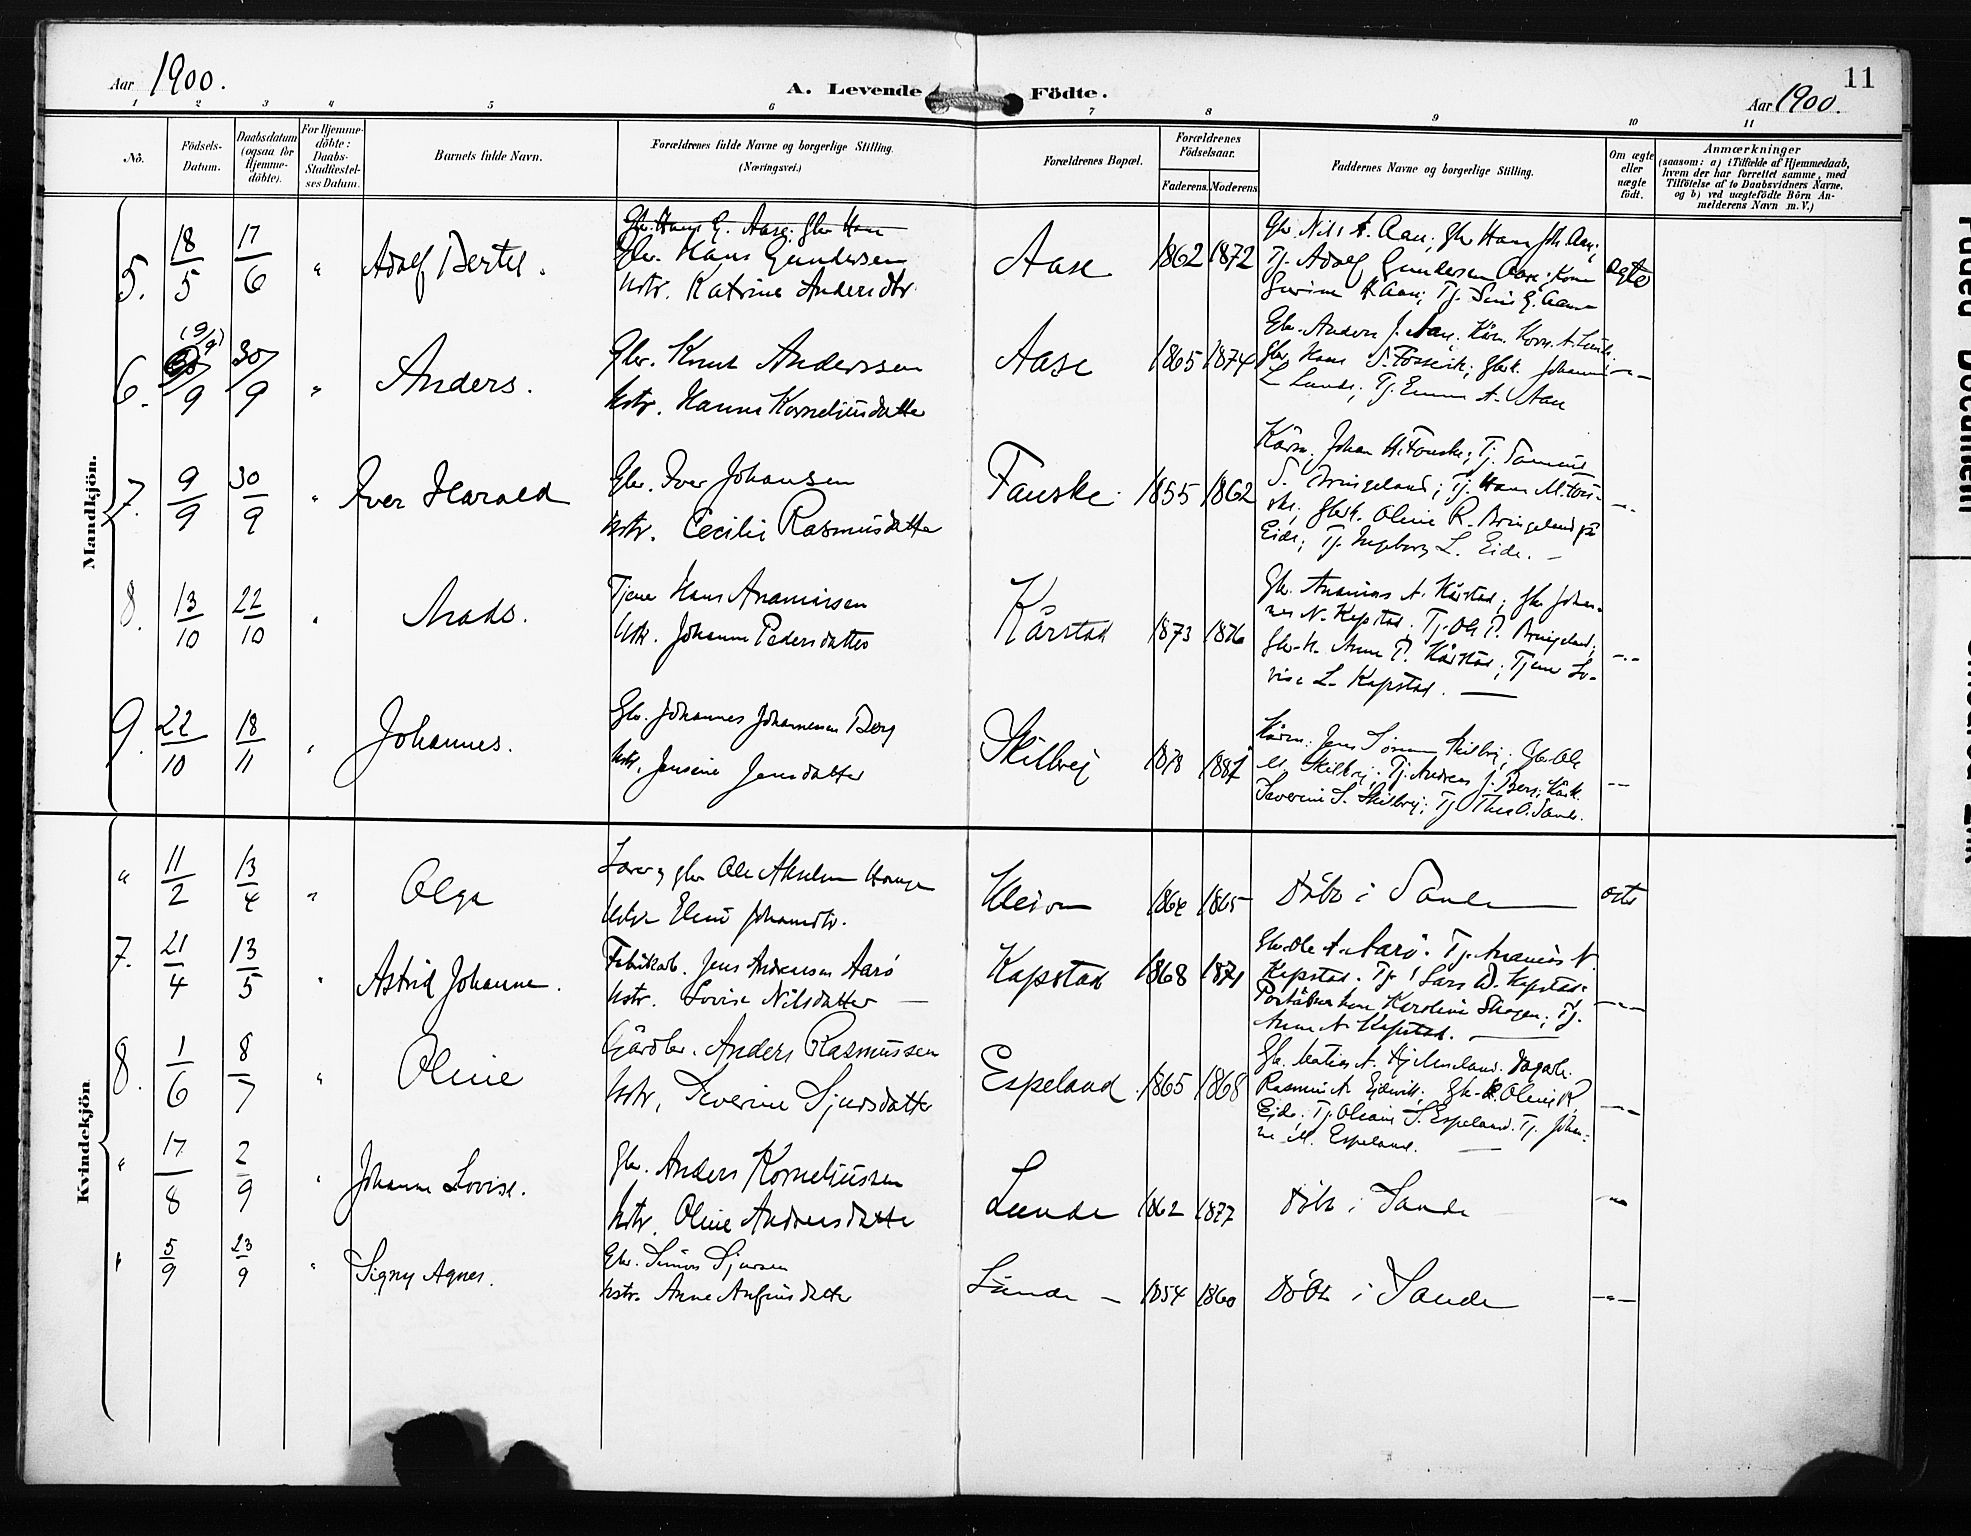 Aar 1900.
A. Levende Födte.
11
Aar 1900.
1 2 3 4 5 6 7 8 9 10 11
Nô.
Födsels-Datum.
Daabsdatum (ogsaa för Hjemme-döbte).
For Hjemme-döbte: Daabs-Stadfæstel-ses Datum.
Barnets fulde Navn.
Forældrenes fulde Navne og borgerlige Stilling.
(Næringsvei.)
Forældrenes Bopæl.
Forældrenes Födselsaar.
Faderens. Moderens
Faddernes Navne og borgerlige Stilling.
Om ægte eller uægte födt.
Anmærkninger
(saasom: a) i Tilfælde af Hjemmedaab,
hvem der har forrettet samme, med
Tilföielse af to Daabsvidners Navne,
og b) ved uægtefödte Börn An-
melderens Navn m. V.)
Mandkjön.
5. 18/5 17/6 " Adolf Bertel.
Gbr. Hans Gundersen
Kstr. Katrine Andersdtr.
Aase 1862 1872
Gbr. Nils A. Aase; Gbr Hans Joh. Aase;
Tj. Adolf Gundersen Aase; Kone
ægte
6. (9/9) 9 30/9 " Anders.
Gbr. Knut Anderssen
Kstr. Hanne Korneliusdatter
Aase 1865 1874
Gbr. Anders J. Aase, Kårm. Korn. A. Lunde.
Gbr. Hans S. Fossevik; Gbrk. Johanne
L Lunde; Tj. Emma A. Aase
-"-
7. 9/9 30/9 " Iver Harald
Gbr. Iver Johansen
Kstr. Cecilie Rasmusdatter
Fauske. 1855 1862
Kårm. Johan H. Fauske; Tj. Samuel
S. Bringeland; Tj. Hans M. Fau-
ske; Gbrk. Oline R. Bringeland på
Eide; Tj. Ingeborg L. Eide. -
-"-
8. 13/10 22/10 " Mads.
Tjener Hans Ananiassen
Kstr. Johanne Pedersdatter
Kårstad 1873 1876
Gbr. Ananias A. Kårstad; Gbr Johan-
nes N. Kapstad. Tj. Ole P. Bringeland;
Gbr.k. Anne P. Kårstad; Tjener Lo-
vise L. Kapstad.
-"-
9. 22/10 18/11 " Johannes.
Gbr. Johannes Johannessen Berg
Kstr. Jensine Jensdatter
Skilbrej 1878 1881
Kårm. Jens Skilbrej; Gbr Ole
M. Skilbrej; Tj. Andreas J. Berg; Kårk.
Severine S. Skilbrej; Tj. Thea O. Sande.
-"-
Kvindekjön
" 11/2 13/4 " Olga
Lærer og gbr Ole Hauge
Eline Johansdtr.
1864 1865
Döbt i Sande
ægte
7. 21/4 13/5 " Astrid Johanne.
Fabrikarb. Jens Andersen Aarö
Kstr. Lovise Nilsdatter
Kapstad 1868 1871
Gbr. Ole A. Aarö. Tj. Ananias N.
Kapstad. Tj. Lars D. Kapstad.
Karoline Skogen; Tj.
Anne N. Kapstad.
-"-
8. 1/6 8/7 " Oline
Gårdbr. Anders Rasmussen
Kstr. Severine Sjursdatter
Espeland 1865 1868
Gbr. Matias A. Hjelmeland. Dagarb.
Rasmus A. Eidevik; Gbr.k. Oline R.
Eide; Tj. S. Espeland. Tj. Johan-
ne M. Espeland.
-"-
" 17/8 2/9 " Johanne Lovise.
Gbr. Anders Korneliussen
Kstr. Oline Andersdatter
Lunde 1862 1877
Döbt i Sande
-"-
" 5/9 23/9 " Signy Agnes.
Gbr. Simon Sjursen
Kstr. Anne Anfinsdatter
Lunde - 1854 1860
Döbt i Sande
-"-